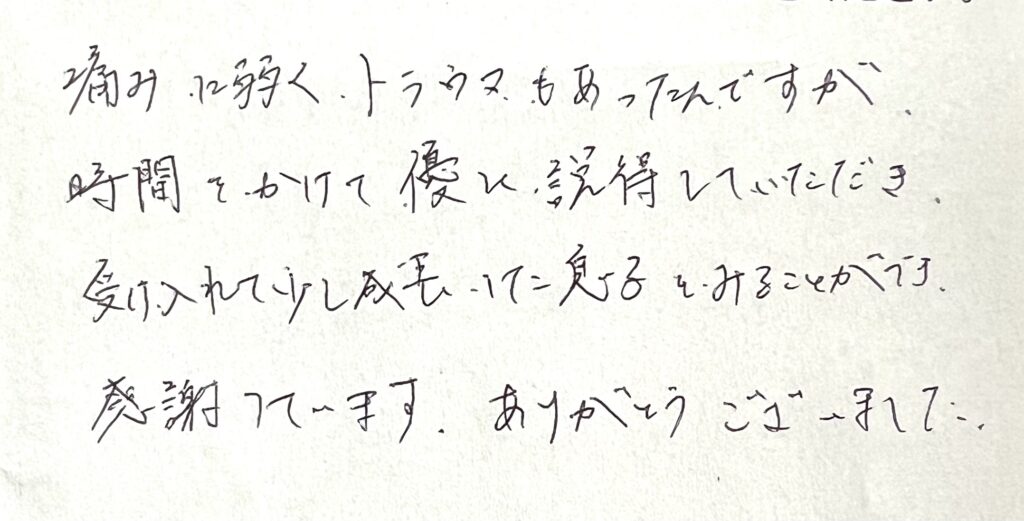 痛みに弱く、トラウマもあったんですが、
時間をかけて優しく説得していただき、
受け入れて少し成長した息子をみることができ、
感謝しています。ありがとうございました。